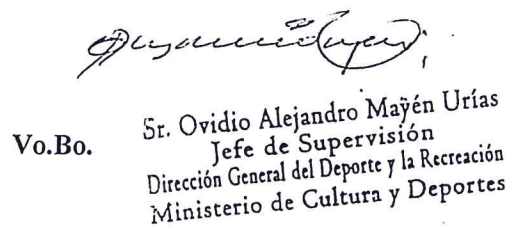 Vo.Bo.
Sr. Ovidio Alejandro Mayén Urías
Jefe de Supervisión
Dirección General del Deporte y la Recreación
Ministerio de Cultura y Deportes